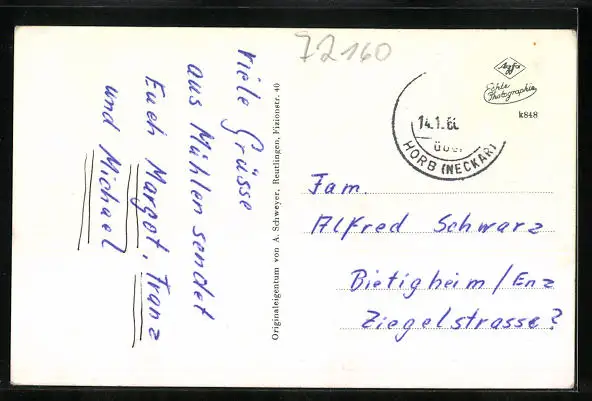 72160
Viele Grüsse
aus Mühlen sendet
Euch Margot, Franz
und Michael
Originaleigentum von A. Schweyer, Reutlingen, Fizionstr. 40
14.1.6
über
HORB (NECKAR)
Agfa
Echte
Photographie
k848
Fam.
Alfred Schwarz
Bietigheim/Enz
Ziegelstrasse?